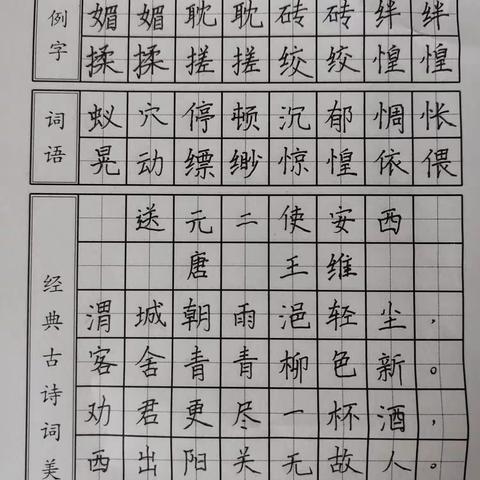 例字
媚媚耽耽砖砖绊绊
揉揉搓搓绞绞惶惶
词语
蚁穴停顿沉郁惆怅
晃动缥缈惊惶依偎
经典古诗词美
送元二使安西
唐 王维
渭城朝雨浥轻尘，
客舍青青柳色新。
劝君更尽一杯酒，
西出阳关无故人。